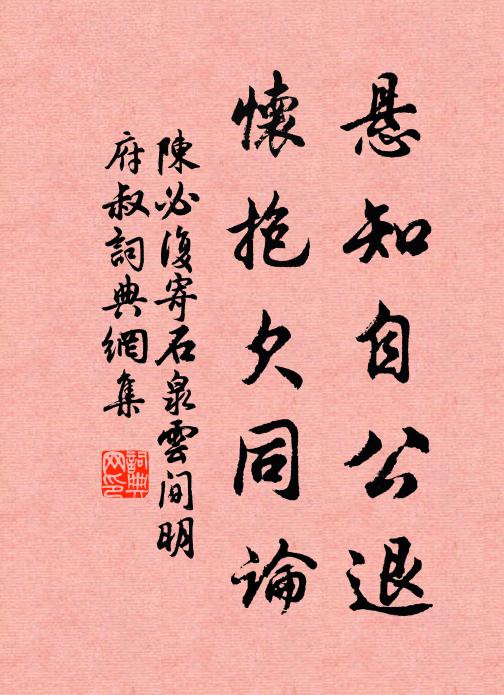 悬知自公退
懷抱欠同論
陳必復寄石泉雲间明
府叔詞典網集
詞典
网印